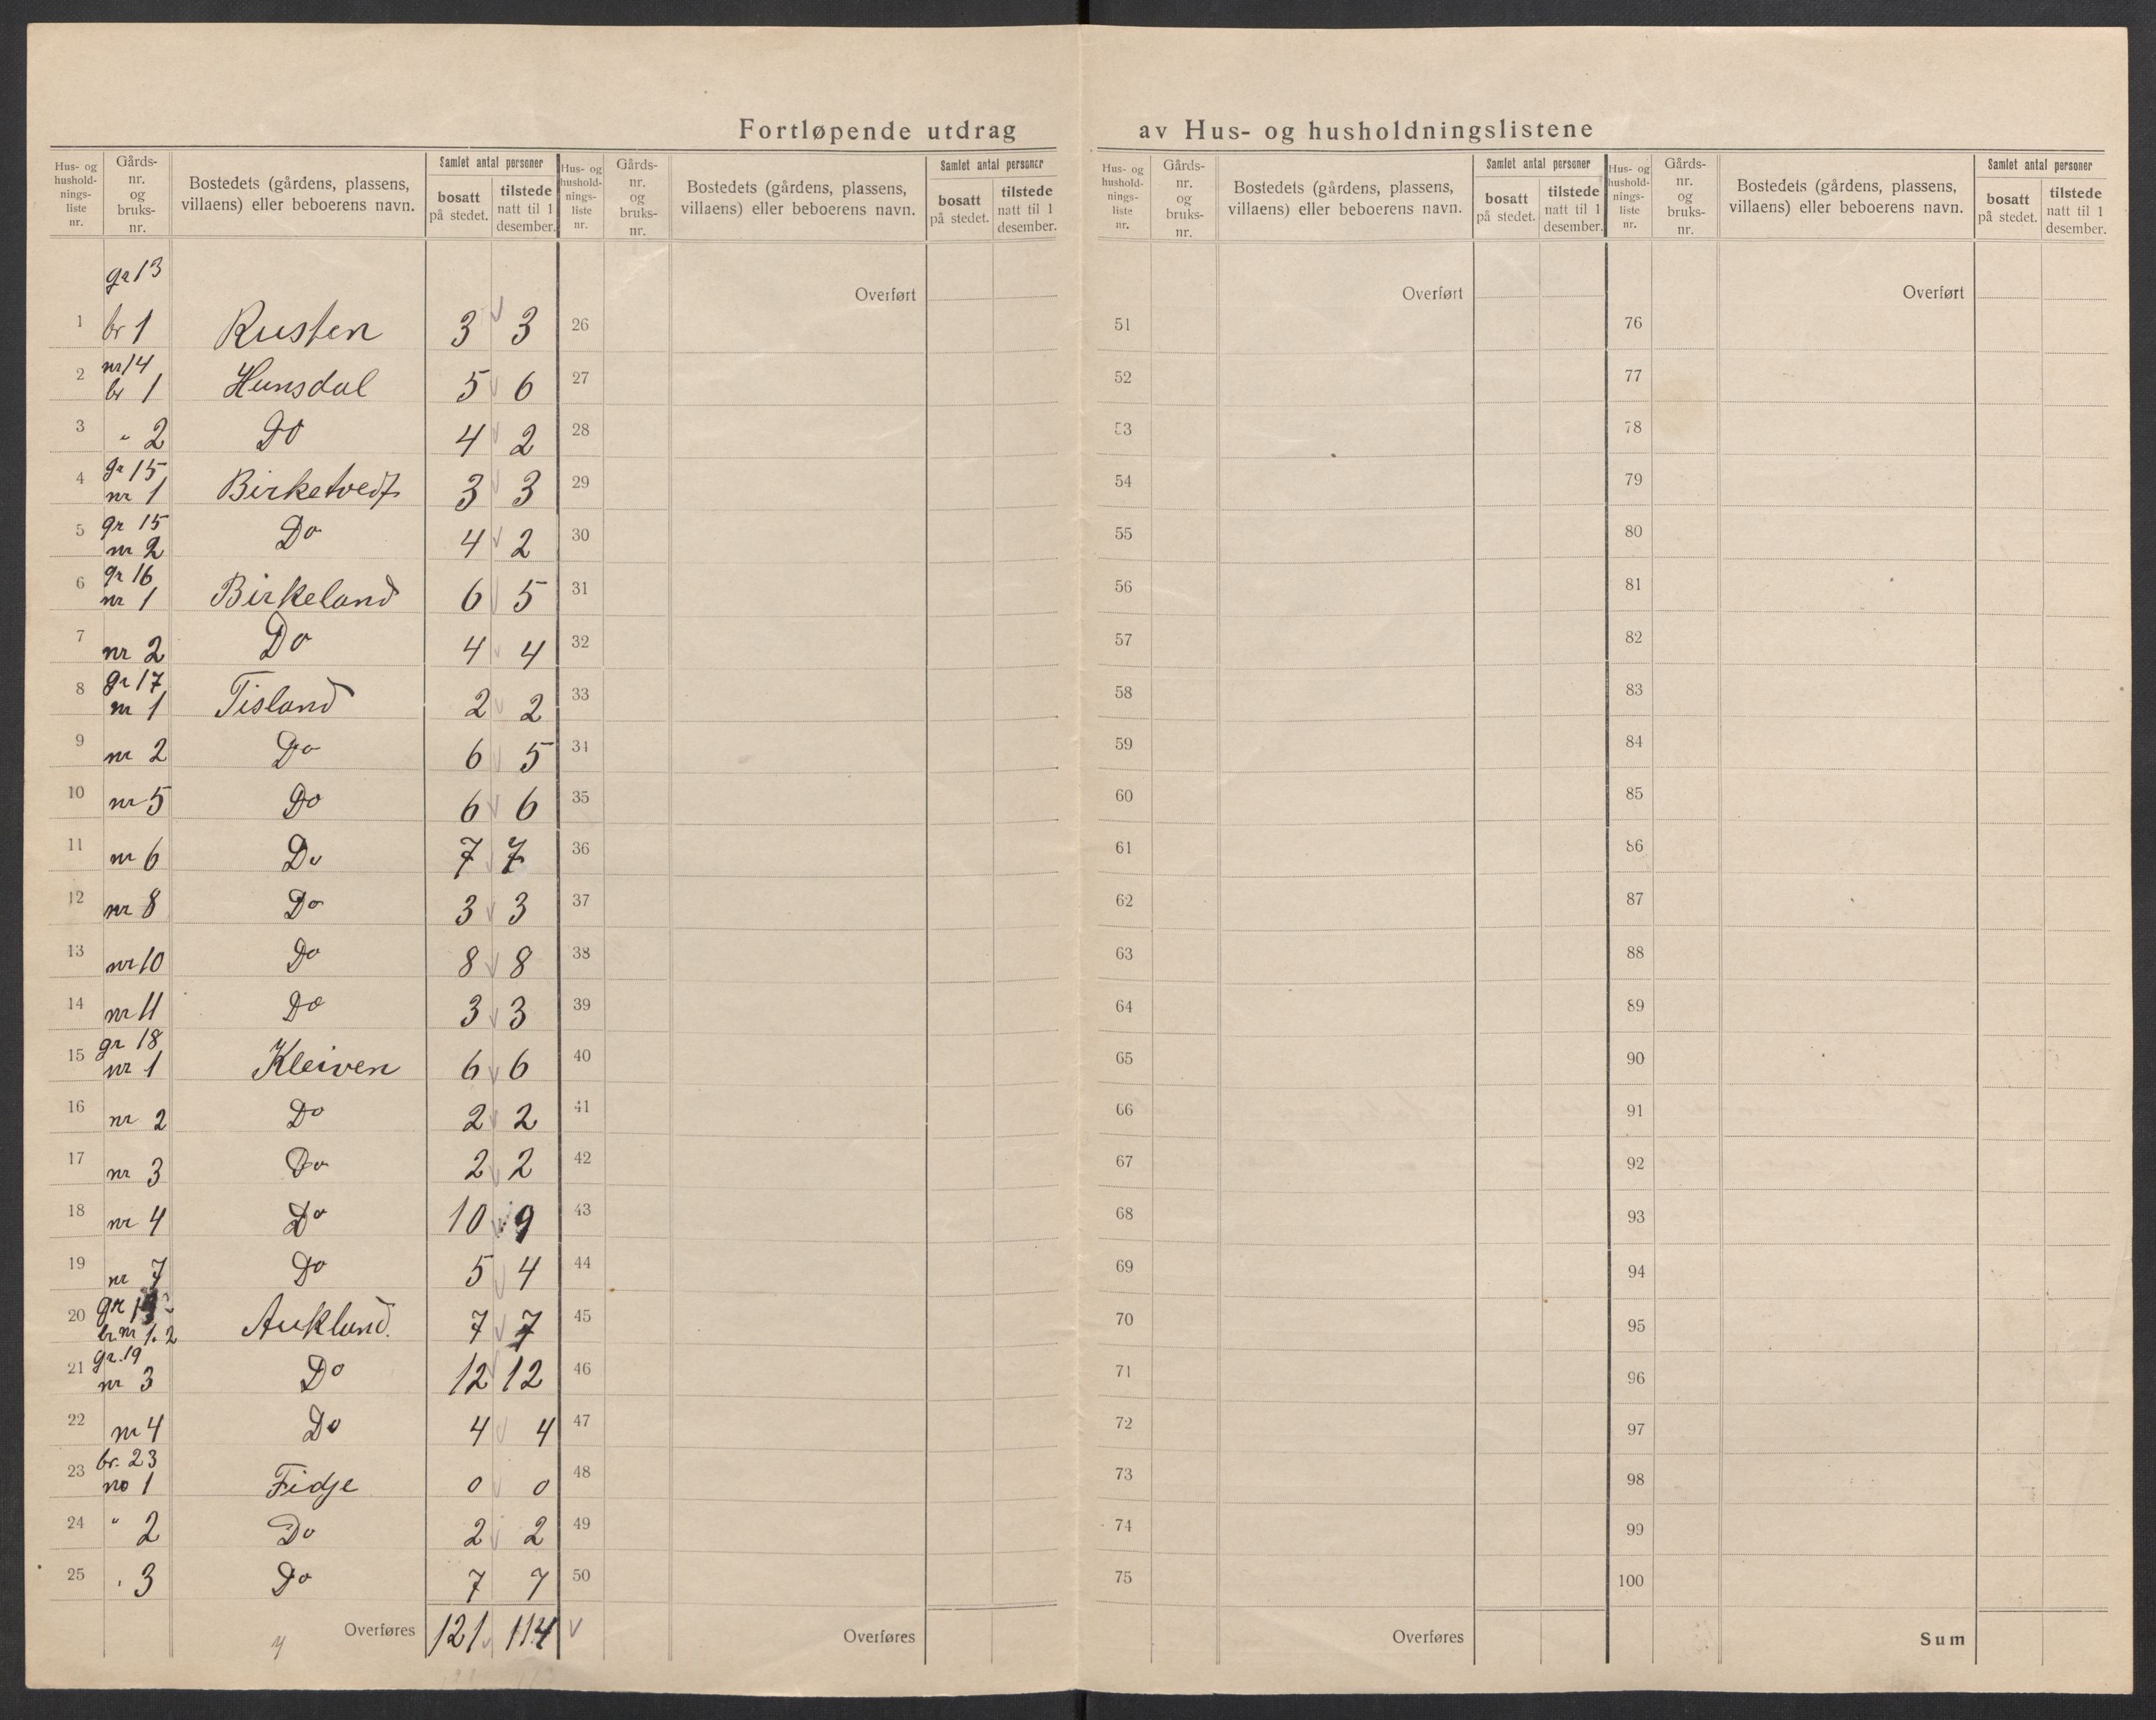 Fortløpende utdrag av Hus- og husholdningslistene
Hus- og hushold-nings-liste nr. | Gårds-nr. og bruks-nr. | Bostedets (gårdens, plassens, villaens) eller beboerens navn. | Samlet antal personer | bosatt på stedet. | tilstede natt til 1 desember.
Hus- og hushold-nings-liste nr. | Gårds-nr. og bruks-nr. | Bostedets (gårdens, plassens, villaens) eller beboerens navn. | Samlet antal personer | bosatt på stedet. | tilstede natt til 1 desember.
Hus- og hushold-nings-liste nr. | Gårds-nr. og bruks-nr. | Bostedets (gårdens, plassens, villaens) eller beboerens navn. | Samlet antal personer | bosatt på stedet. | tilstede natt til 1 desember.
Hus- og hushold-nings-liste nr. | Gårds-nr. og bruks-nr. | Bostedets (gårdens, plassens, villaens) eller beboerens navn. | Samlet antal personer | bosatt på stedet. | tilstede natt til 1 desember.
gr 13 Overført Overført Overført
1 br 1 Rusten 3 3 26 51 76
nr 14
2 br 1 Hunsdal 5 6 27 52 77
3 " 2 Do 4 2 28 53 78
gr 15
4 nr 1 Birketvedt 3 3 29 54 79
gr 15
5 nr 2 Do 4 2 30 55 80
gr 16
6 nr 1 Birkeland 6 5 31 56 81
7 nr 2 Do 4 4 32 57 82
gr 17
8 nr 1 Tisland 2 2 33 58 83
9 nr 2 Do 6 5 34 59 84
10 nr 5 Do 6 6 35 60 85
11 nr 6 Do 7 7 36 61 86
12 nr 8 Do 3 3 37 62 87
13 nr 10 Do 8 8 38 63 88
14 nr 11 Do 3 3 39 64 89
gr 18
15 nr 1 Kleiven 6 6 40 65 90
16 nr 2 Do 2 2 41 66 91
17 nr 3 Do 2 2 42 67 92
18 nr 4 Do 10 9 43 68 93
19 nr 7 Do 5 4 44 69 94
gr
20 br nr 1. 2 Aukland. 7 7 45 70 95
gr. 19
21 nr 3 Do 12 12 46 71 96
22 nr 4 Do 4 4 47 72 97
br. 23
23 no 1 Fidje 0 0 48 73 98
24 " 2 Do 2 2 49 74 99
25 " 3 Do 7 7 50 75 100
Overføres 121 114 Overføres Overføres Sum